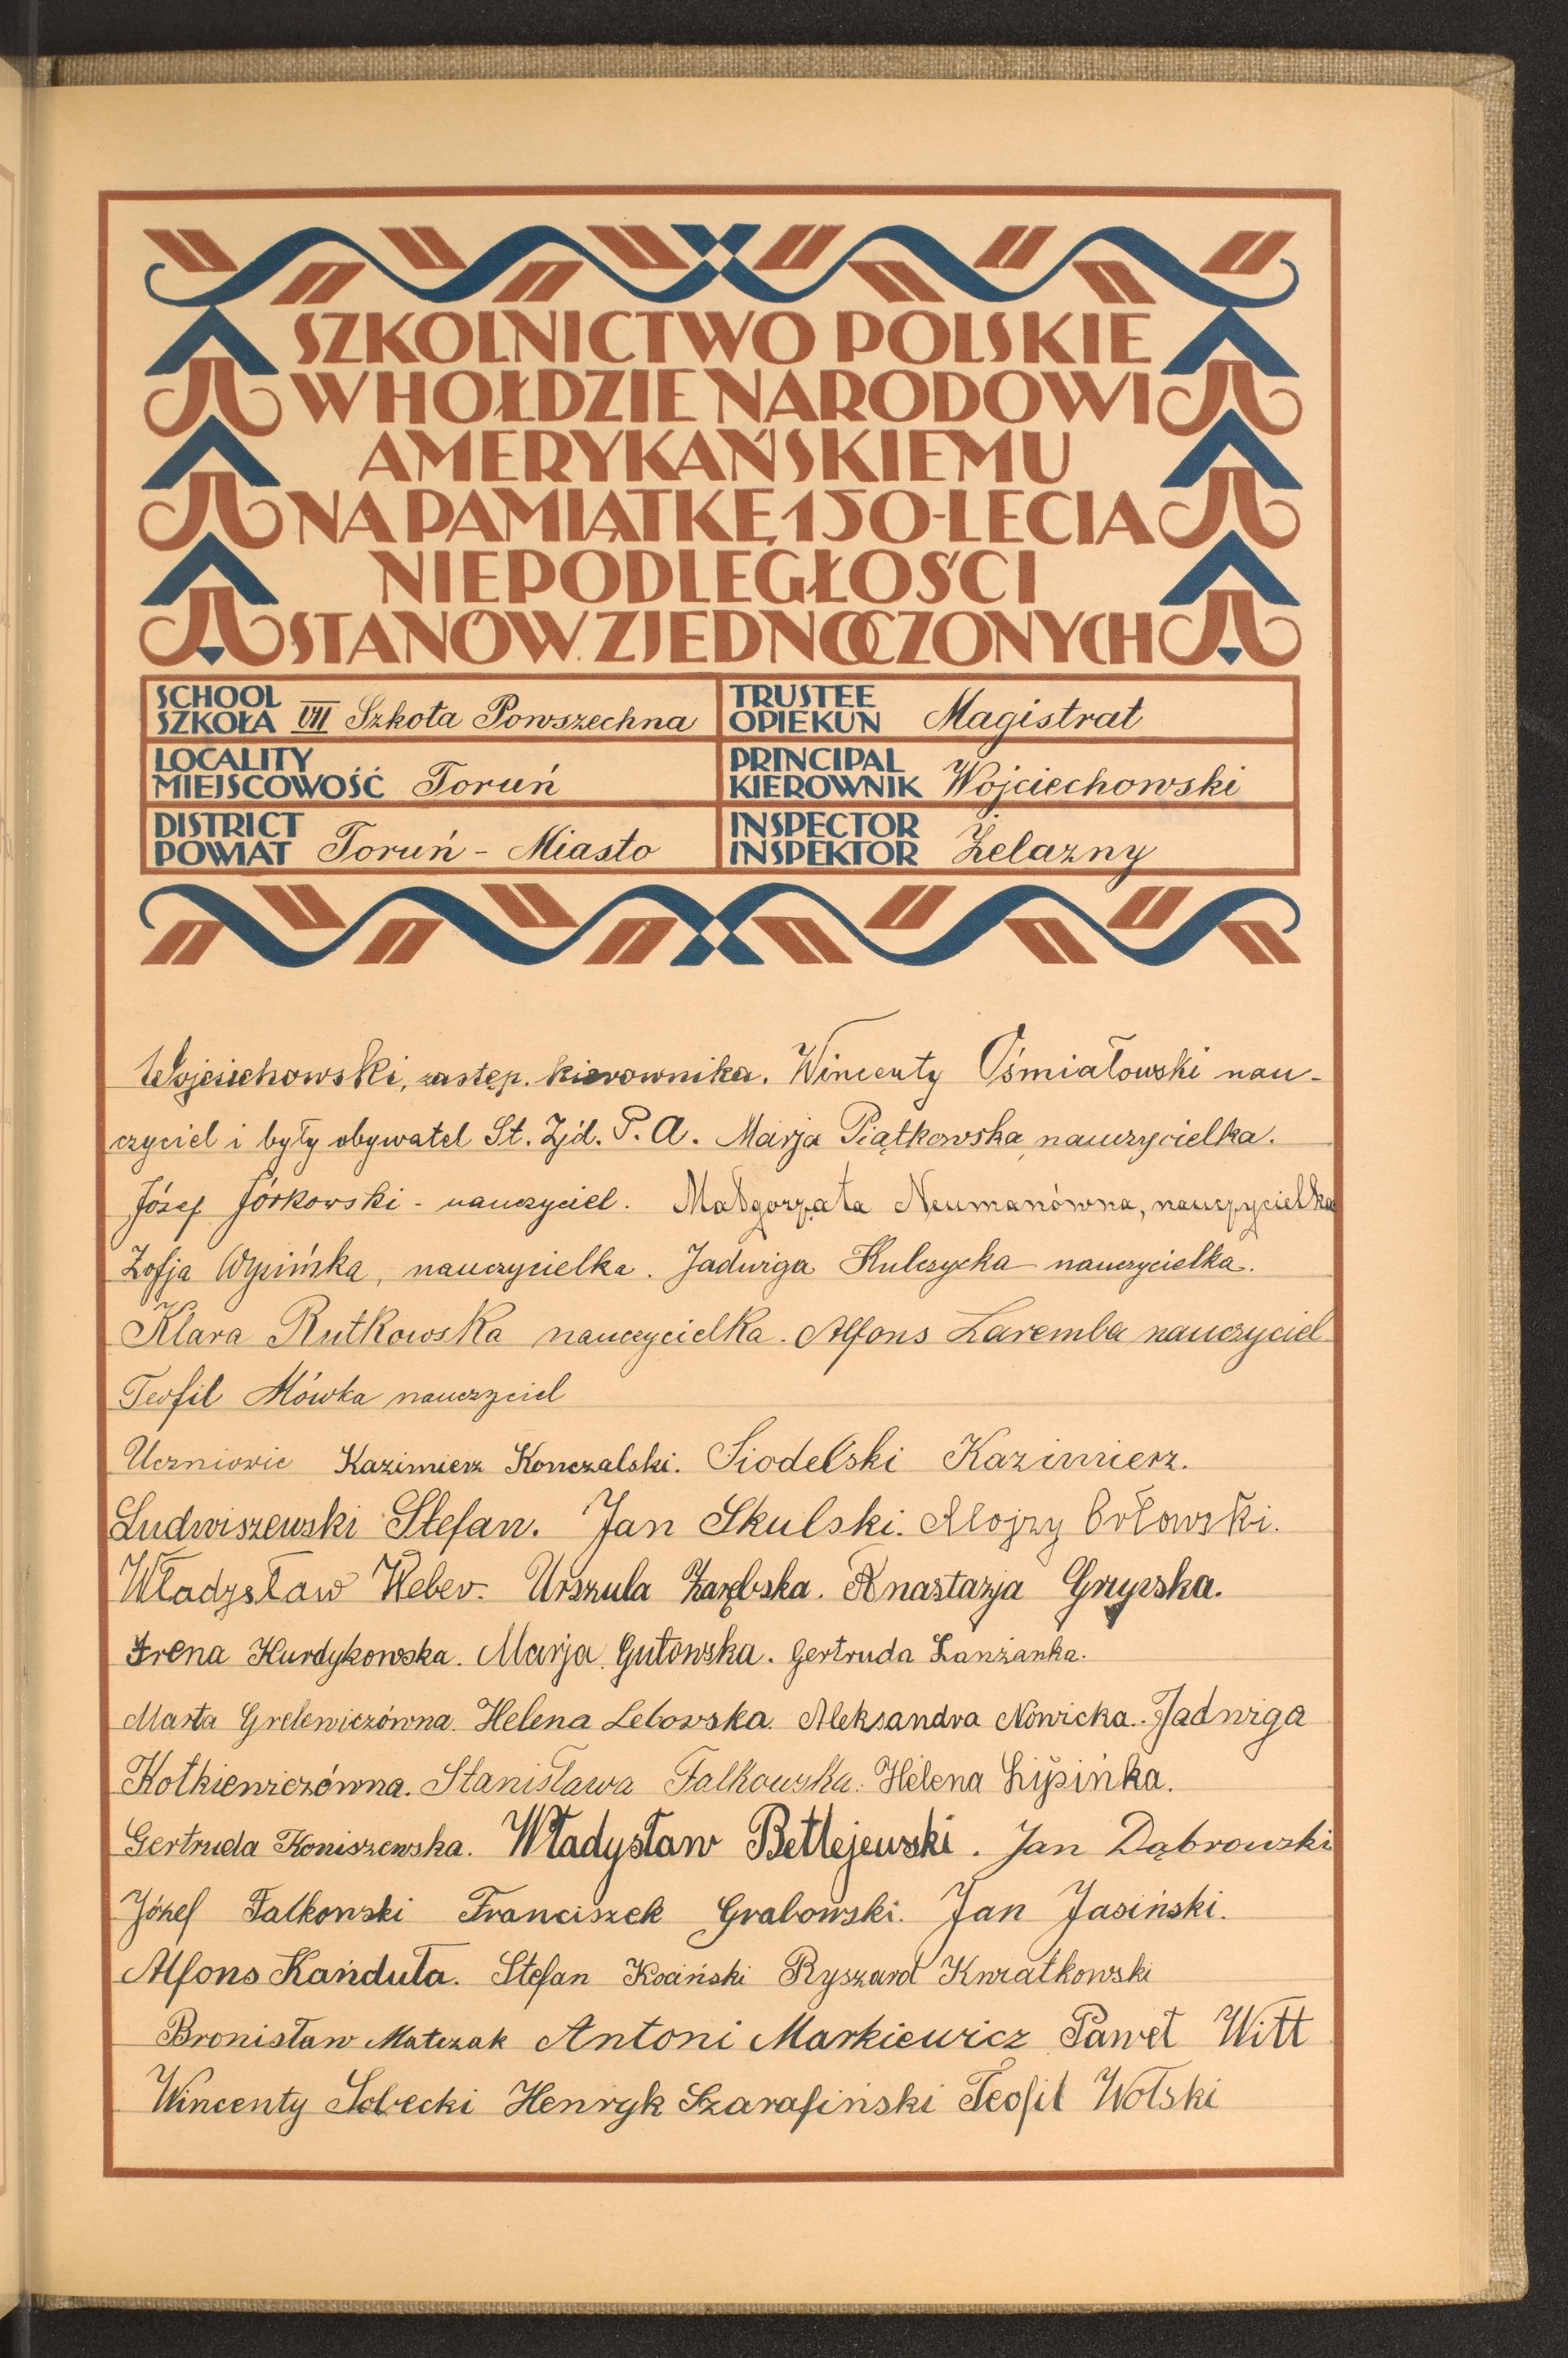 SZKOLNICTWO POLSKIE
W HOŁDZIE NARODOWI
AMERYKAŃSKIEMU
NA PAMIĄTKĘ 150-LECIA
NIEPODLEGŁOŚCI
STANÓW ZJEDNOCZONYCH
SCHOOL
SZKOŁA VII Szkoła Powszechna
TRUSTEE
OPIEKUN Magistrat
LOCALITY
MIEJSCOWOŚĆ Toruń
PRINCIPAL
KIEROWNIK Wojciechowski
DISTRICT
POWIAT Toruń - Miasto
INSPECTOR
INSPEKTOR Żelazny
Wojciechowski, zastęp. kierownika. Wincenty Ośmiałowski nau-
czyciel i były obywatel St. Zjd. P. A. Marja Piątkowska, nauczycielka.
Józef Jórkowski - nauczyciel. Małgorzata Neumanówna, nauczycielka
Zofja nauczycielka. Jadwiga Kulczycka nauczycielka.
Klara Rutkowska nauczycielka. Alfons Zaremba nauczyciel
Teofil Mówka nauczyciel
Uczniowie Kazimierz Konczalski. Siodelski Kazimierz.
Ludwiszewski Stefan. Jan Skulski. Alojzy Orłowski.
Władysław Weber. Urszula Zarębska. Anastazja
Irena Kurdykowska. Marja Gutowska. Gertruda Lanżanka.
Marta Grelewiczówna. Helena Lebowska. Aleksandra Nowicka. Jadwiga
Kotkiewiczówna. Stanisława Falkowska. Helena Lipińka.
Gertruda Koniszewska. Władysław Betlejewski. Jan Dąbrowski
Józef Falkowski Franciszek Grabowski. Jan Jasiński.
Alfons Kanduła. Stefan Kociński Ryszard Kwiatkowski
Bronisław Matczak Antoni Markiewicz Paweł Witt
Wincenty Sobecki Henryk Szarafiński Teofil Wolski